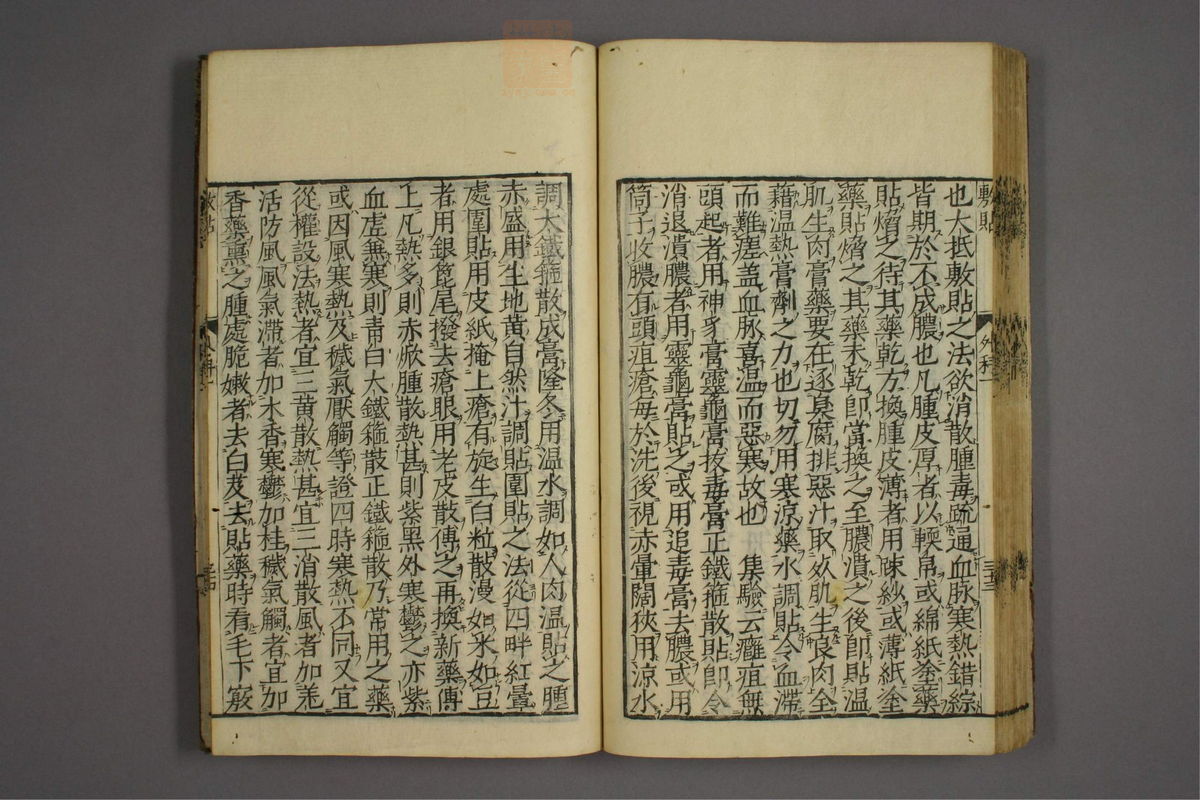 敷貼
外科一
三十三
也大抵敷貼之法欲消散腫毒疏通血脉寒熱錯綜
皆期於不成膿也凡腫皮厚者以軟帛或綿紙塗藥
貼熁之待其藥乾方換腫皮薄者用疎紗或薄紙塗
藥貼熁之其藥未乾即當換之至膿潰之後即貼温
肌生肉膏藥要在逐臭腐排惡汁取死肌生良肉全
藉温熱膏劑之力也切勿用寒涼藥水調貼令血滯
而難瘥盖血脉喜温而惡寒故也　集驗云癰疽無
頭起者用神異膏靈龜膏拔毒膏正鐵箍散貼即令
消退潰膿者用靈龜膏貼之或用追毒膏去膿或用
筒子收膿有頭疽瘡每於洗後視赤暈闊狹用涼水
調大鐵箍散成膏隆冬用温水調如人肉温貼之腫
赤盛用生地黄自然汁調貼圍貼之法從四畔紅暈
處圍貼用皮紙掩上瘡有旋生白粒散漫如米如豆
者用銀篦尾撥去瘡眼用老皮散傅之再換新藥傅
上凡熱多則赤焮腫散熱甚則紫黑外寒鬱之亦紫
血虚無寒則青白大鐵箍散正鐵箍散乃常用之藥
或因風寒熱及穢氣厭觸等證四時寒熱不同又宜
從權設法熱者宜三黄散熱甚宜三消散風者加羌
活防風風氣滯者加木香寒鬱加桂穢氣觸者宜加
香藥熏之腫處脆嫩者去白芨夫貼藥時看毛下竅